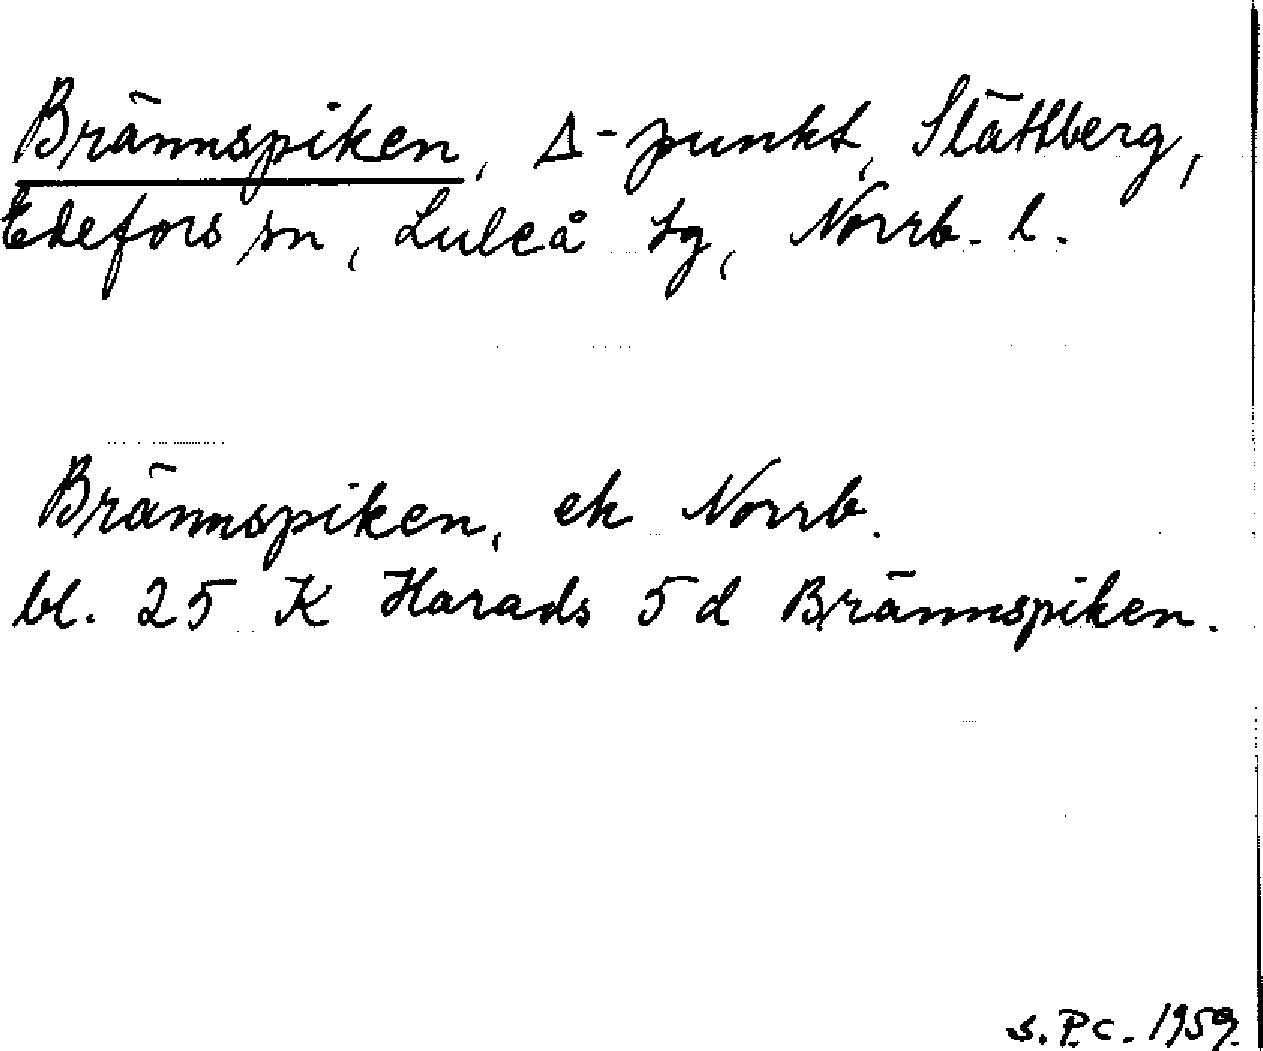 Brännspiken, Δ-punkt, Slättberg,
Edefors sn, Luleå tg, Norrb. l.
Brännspiken, ek Norrb.
bl. 25 K Harads 5d Brännspiken.
s. P.C. 1959.